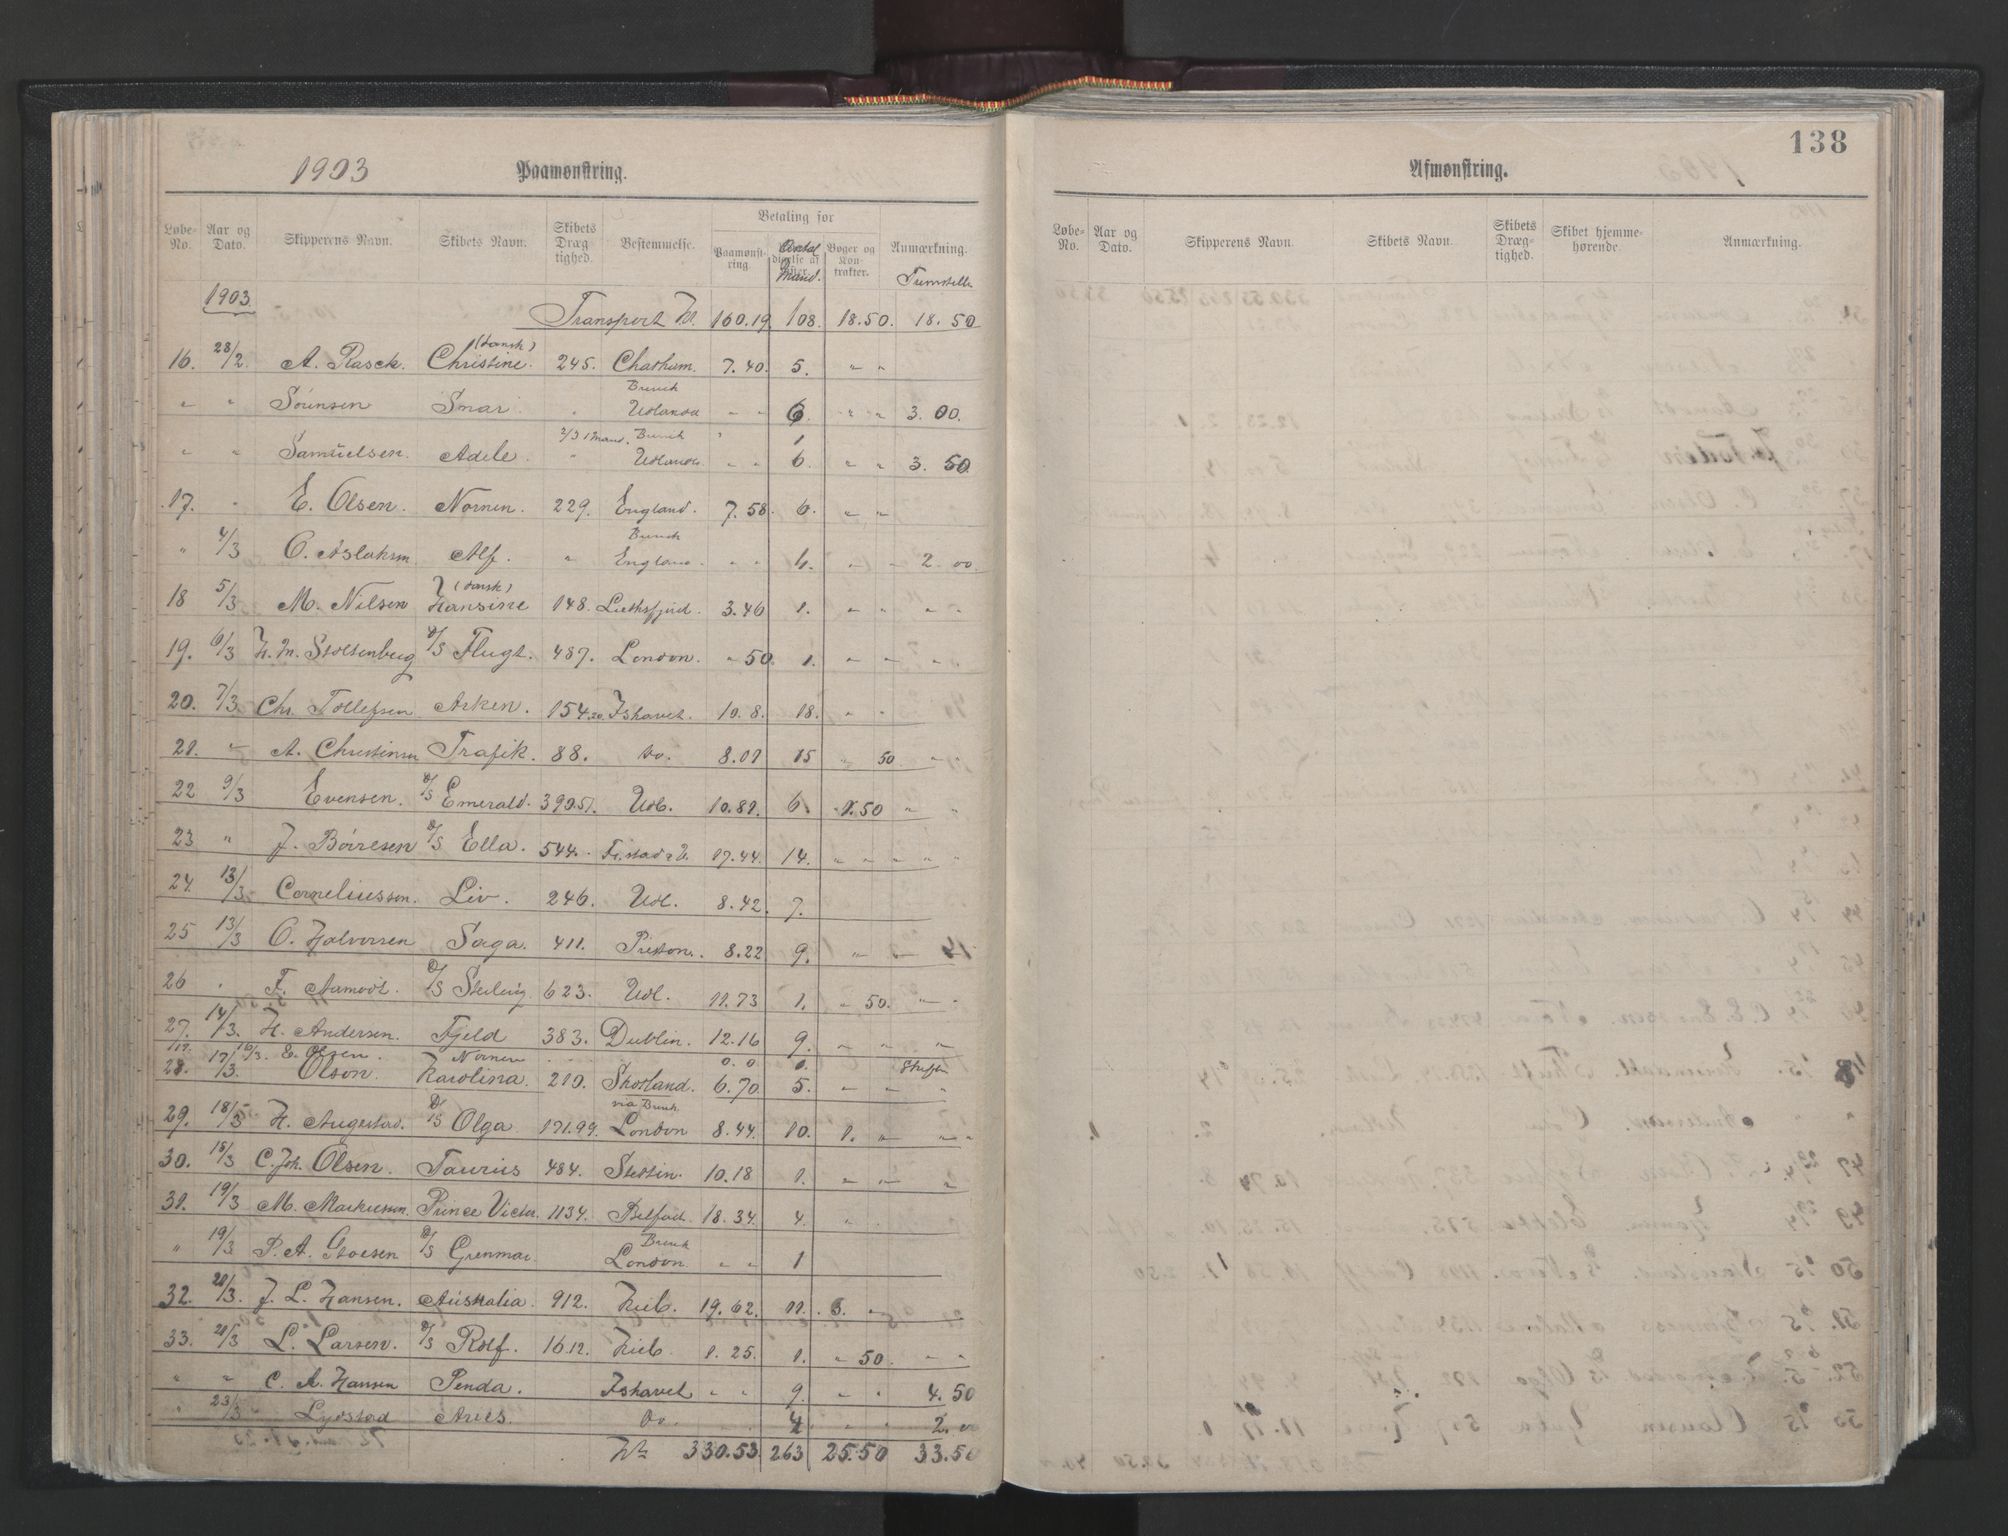 1903 Paamønstring.
Løbe-No. Aar og Dato. Skipperens Navn. Skibets Navn. Skibets Drægtighed. Bestemmelse. Betaling for Paamønstring. Antal Mand. Bøger og Kontrakter. Anmærkning.
1903
Transport Kr. 160.19 108. 18.50. 18.50
16. 28/2 A. Rasck. Christine. (dansk) 245. Chatham. 7.40. 5. " "
" " Sörensen Snar. " Brevik Udlandet " " 6. " " 3.00.
2/3 1 Mand. Brevik " 1
" " Samuelsen. Adele. " Udlandet " " 6. " " 3.50
17. " E. Olsen. Nornen. 229. England. 7.58. 6. " "
" 4/3 O. Aslaksen Alf. " Brevik England. " " 4. " " 2.00.
18 5/3 M. Nilsen Hansine (dansk) 148. 3.46 1. " " " "
19. 6/3 H. M. Stoltenberg D/S Flugt. 487. London. " 50. 1. " " " "
20. 7/3 Chr. Tollefsen Arken. 154.20. Ishavet. 10.8. 18. " "
21. " A. Christensen Trafik. 88. Do. 8.01 15 " 50. " "
22 9/3 Evensen. D/S Emerald. 390.51. Udl. 10.81. 6. 1.50 " "
23 " J. Böiresen D/S Ella. 544. 17.44. 14. " " " " "
24. 13/3 Corneliussen. Liv. 246. Udl. 8.42. 7.
25 13/3 O. Halvorsen Saga. 411. Preston. 8.22 9. " "
26 " F. Aamodt. D/S Sterling 623. Udl. 11.73 1. " 50. " "
27. 14/3. H. Andersen. Fjeld 383. Dublin. 12.16 9. " " "
17. 16/3. E. Olsen. Nornen 0.0 1.
28. 17/3. Olsen. Karolina. 210. Skotland. 6.70. 5. " " "
29. 18/3 H. Augestad. D/S Olga 171.99. via Brevik London 8.44. 10. 1. " " "
30. 18/3 C. Joh. Olsen. Taurus 484. Stettin. 10.18 1. " " "
31. 19/3 M. Markussen. Prince Victor. 1134. Belfast. 18.34. 4. " "
" 19/3 P. A. Groesen D/S Grenmar. Brevik London " " 1
32. 20/3. J. L. Hansen. Australia. 912. Kieb. 19.62. 11. 3. "
33. 21/3 L. Larsen. D/S Rolf. 16.12. Kieb. 1.25. 1. " 50. " "
" " C. A. Hansen Penda. Ishavet " " 9. " " 4.50
" 23/3 Lydstad Aries. Do. 4 " " 2.00
Kr. 330.53. 263 25.50 33.50
138
Afmønstring.
Løbe-No. Aar og Dato. Skipperens Navn. Skibets Navn. Skibets Drægtighed. Skibet hjemmehørende. Anmærkning.